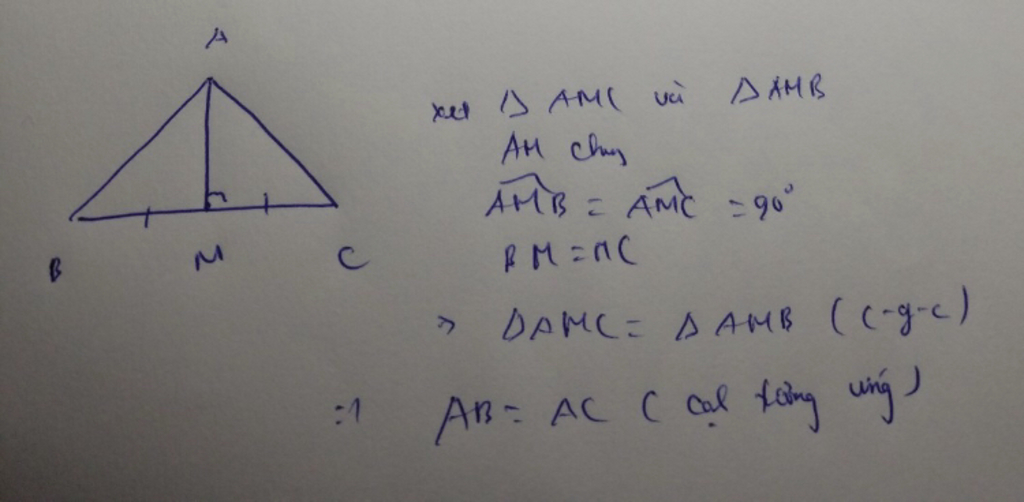 A
B
M
C
xét Δ AMC và Δ AMB
AM chung
AMB = AMC = 90°
BM = MC
=> Δ AMC = Δ AMB (c-g-c)
=> AB = AC (cạh tương ứng)